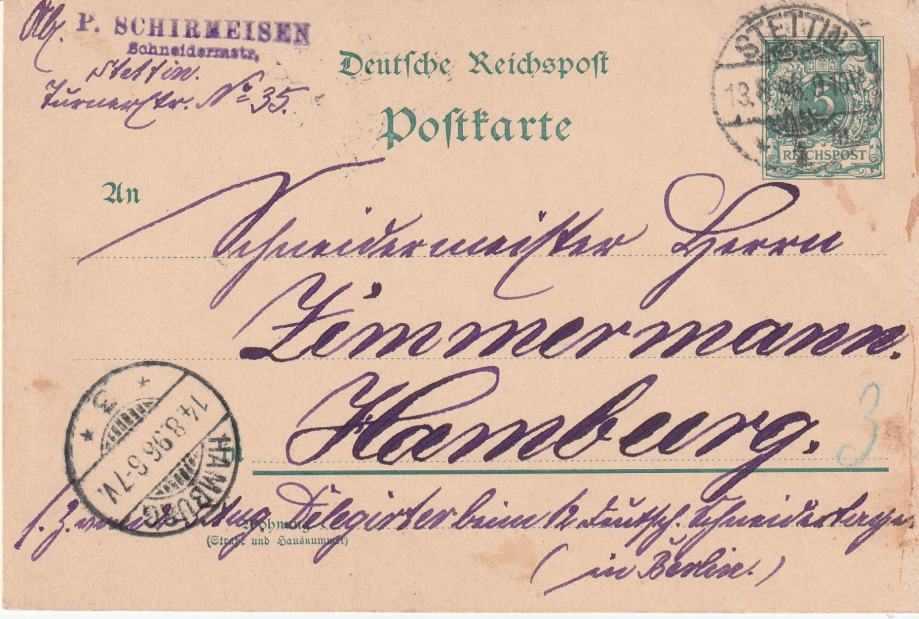 Ab. P. SCHIRMEISEN
Schneidermstr.
Stettin.
Turnerstr. No 35.
Deutsche Reichspost
Postkarte
STETTIN
13.8.96
5
REICHSPOST
An
Schneidermeister Herrn
Zimmermann.
Hamburg.
3
HAMBURG
14.8.96.6-7V.
3
Delegirter beim 12 Deutsch. Schneidertage
Wohnung
(Straße und Hausnummer)
(in Berlin.)